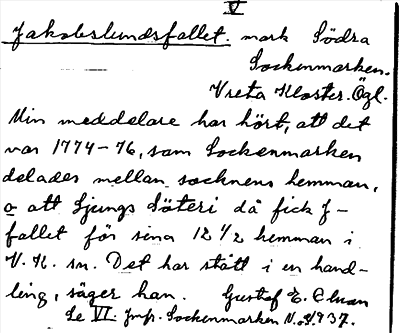 V
Jakobslundsfallet. mark Södra
Sockenmarken.
Vreta Kloster. Ögl.
Min meddelare har hört, att det
var 1774-76, som Sockenmarken
delades mellan socknens hemman,
o att Ljungs Säteri då fick J-
fallet för sina 12 1/2 hemman i
V. K. sn. Det har stått i en hand-
ling, säger han. Gustaf E.
Se VI. Jmf. Sockenmarken N. 1937.